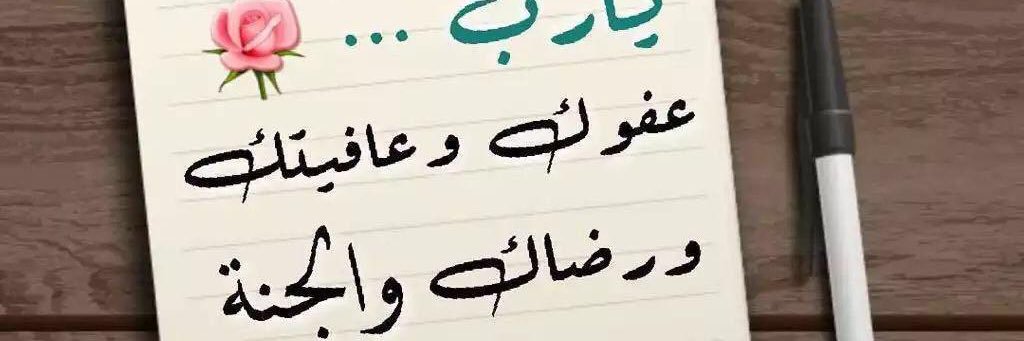 يارب ...
عفوك وعافيتك
ورضاك والجنة